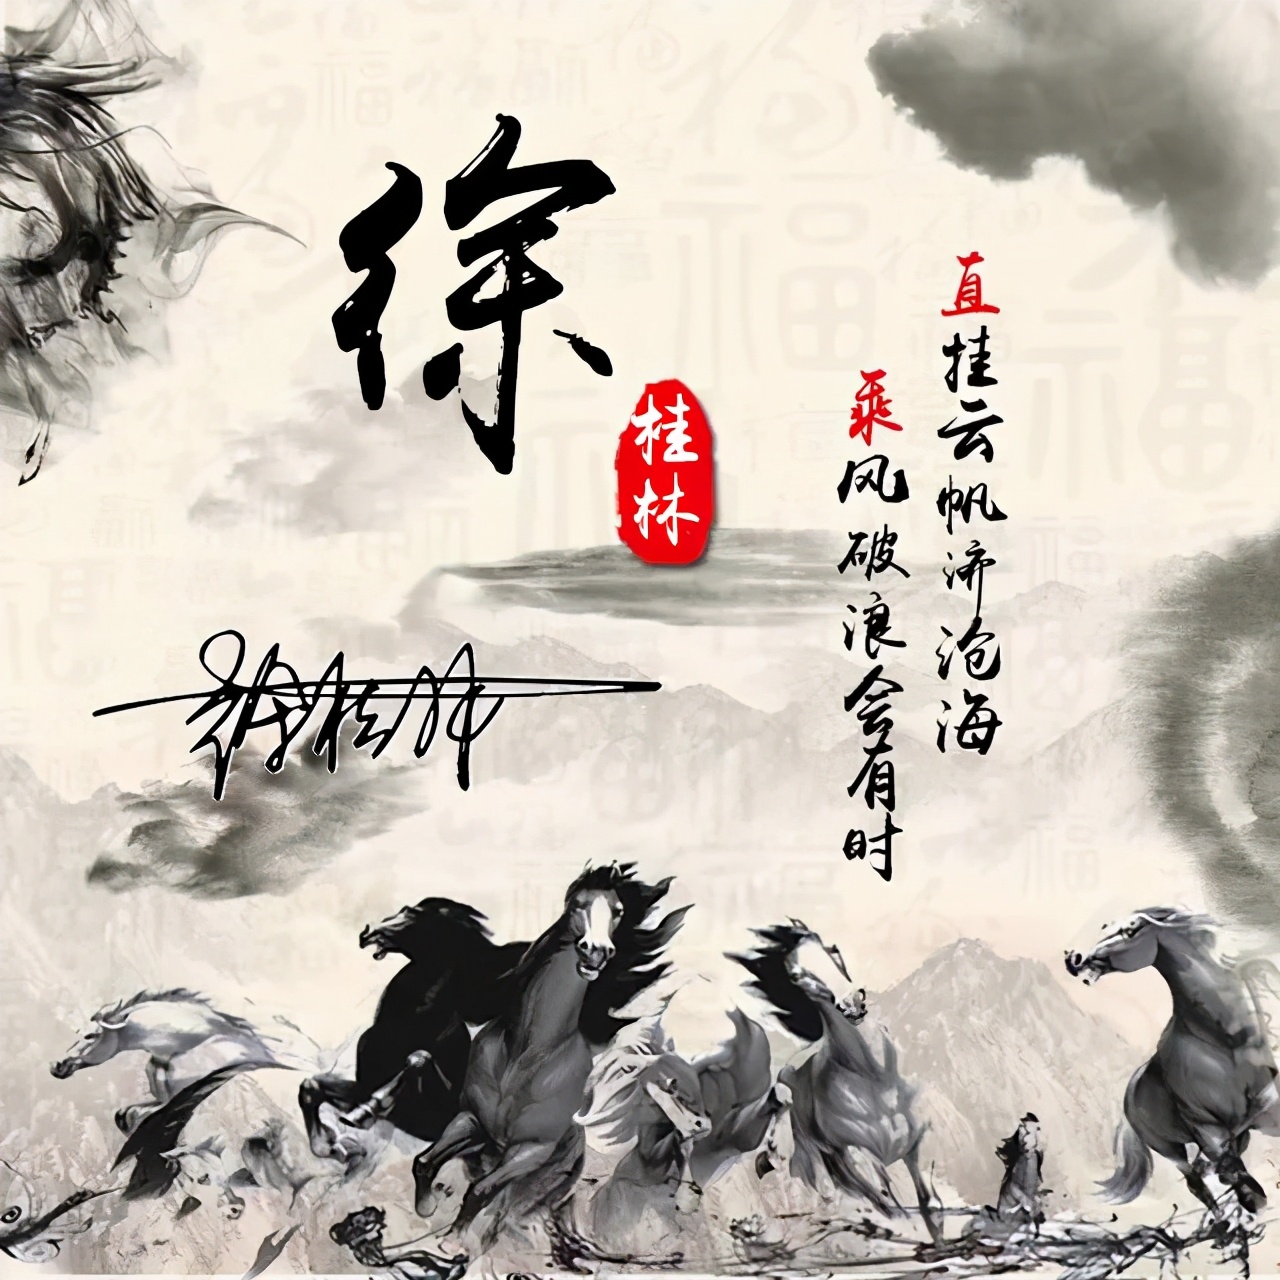 徐
桂林
徐桂林
直挂云帆济沧海
乘风破浪会有时